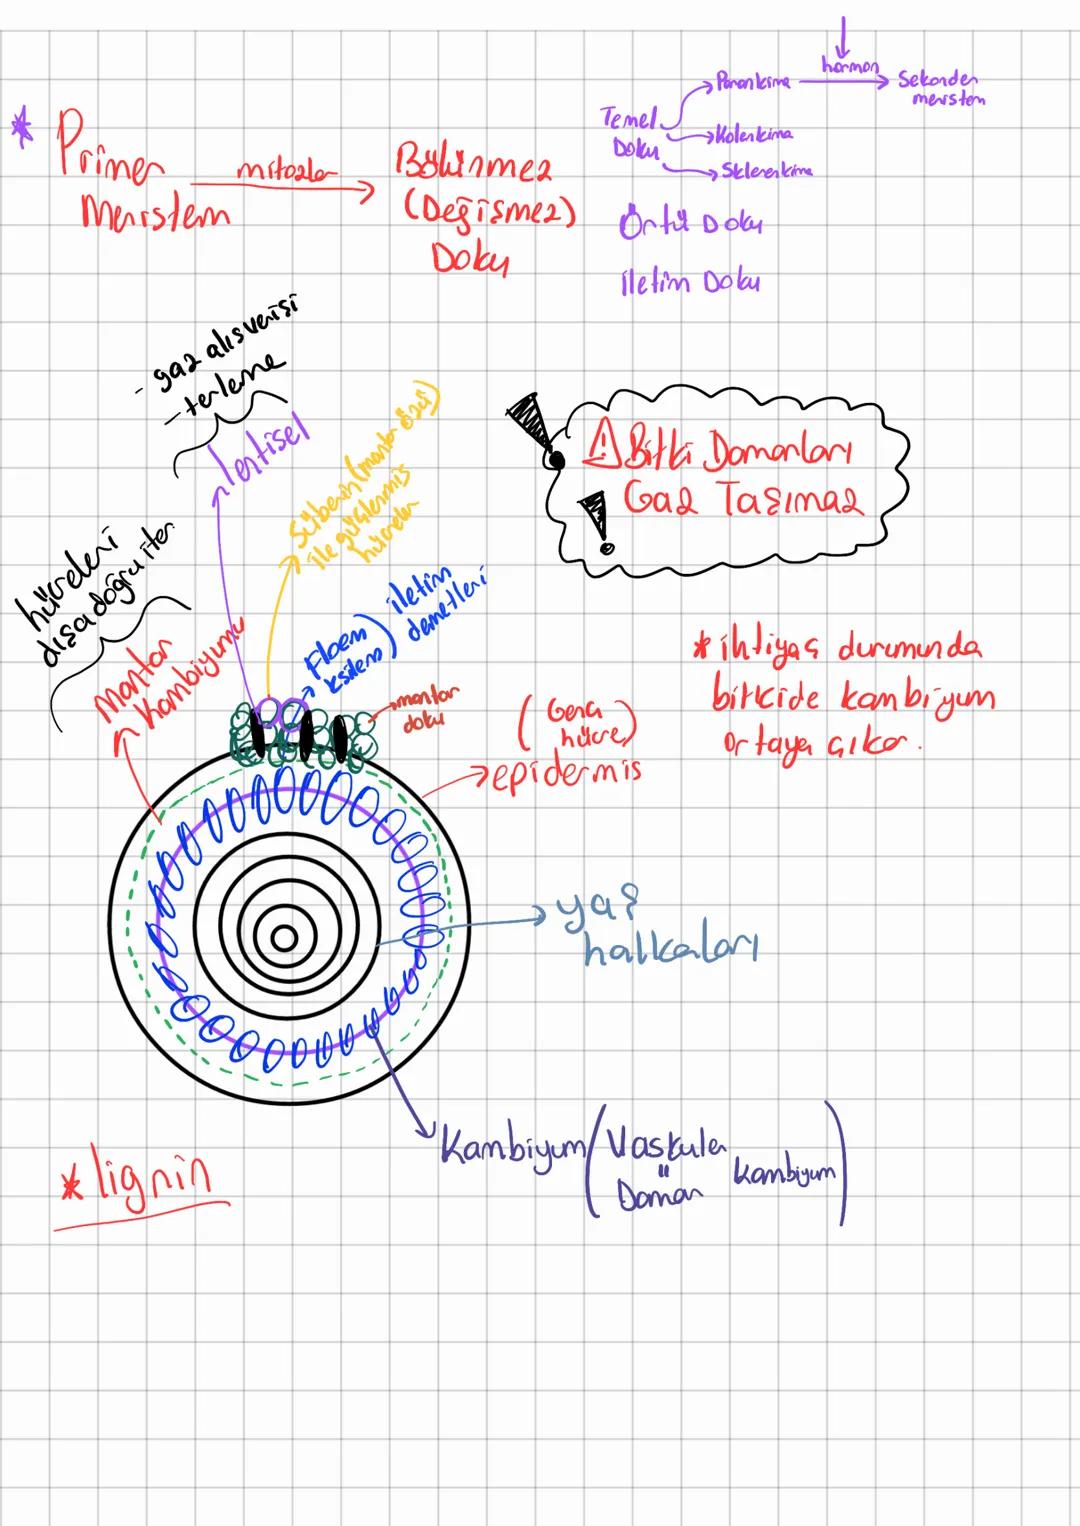 * Primer
Meristem
mitozlar
Bölünmez
(Değişmez)
Doku
Temel
Doku
Parankima
hormon
Sekonder
meristem
Kolenkima
Sklerenkima
Örtü Doku
İletim Doku
- gaz alışverişi
- terleme
lentisel
Süberin (mantar özü)
ile güçlenmiş
hücreler
hücreleri
dışa doğru iter.
mantar
kambiyumu
Floem
ksilem)
iletim
demetleri
mantar
doku
(Genç
hücre)
epidermis
Bitki Damarları
Gaz Taşımaz
* ihtiyaç durumunda
bitkide kambiyum
ortaya çıkar.
yaş
halkaları
Kambiyum (Vasküler
"
Damar
kambiyum)
* lignin